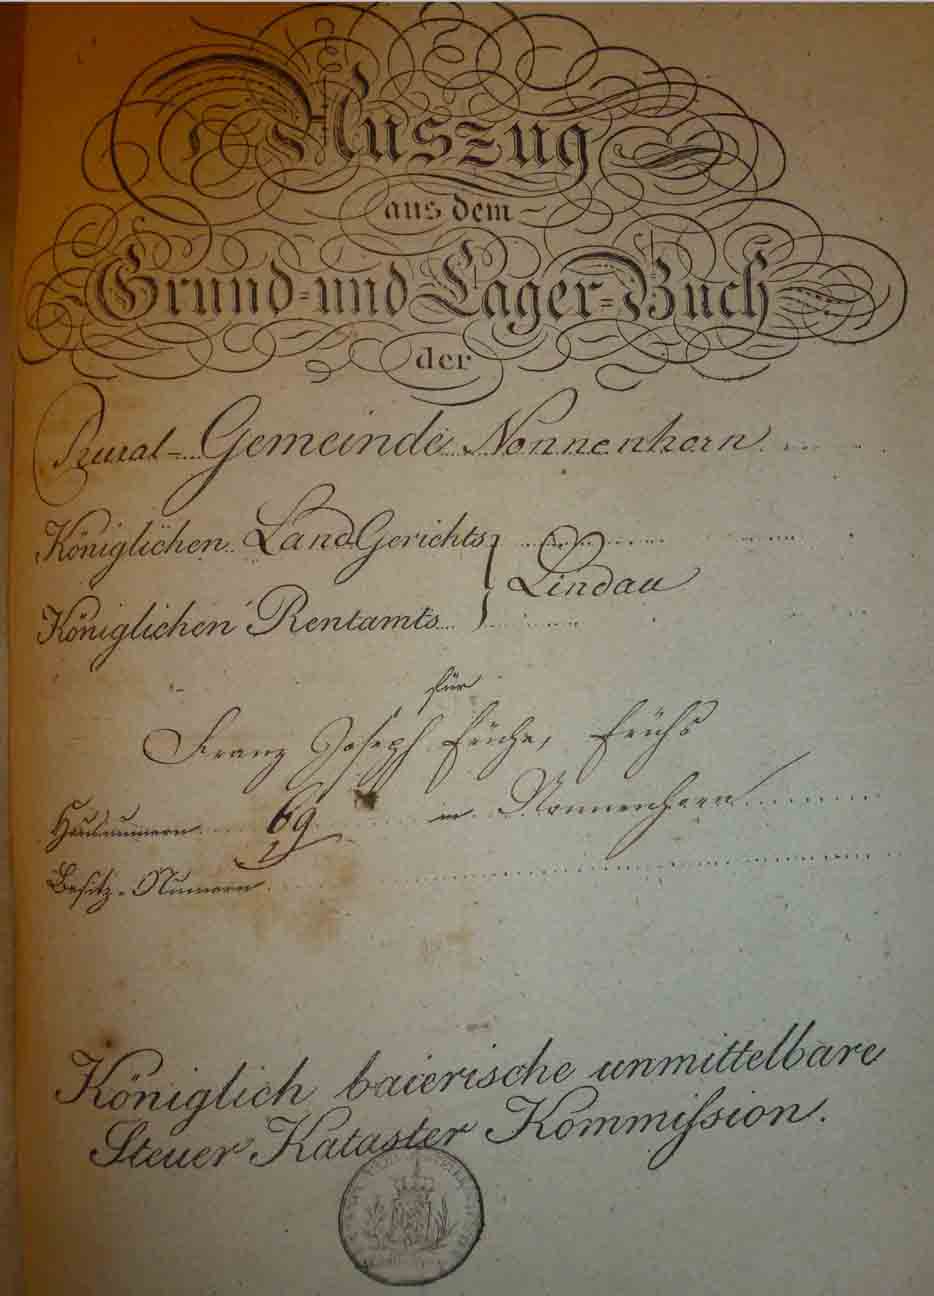 Auszug
aus dem
Grund- und Lager-Buch
der
Rural-Gemeinde Nonnenhorn
Königlichen LandGerichts
Lindau
Königlichen Rentamts
für
Franz Joseph
Hausnummern 69 in Nonnenhorn
Besitz-Numern
Königlich baierische unmittelbare
Steuer Kataster Kommißion.